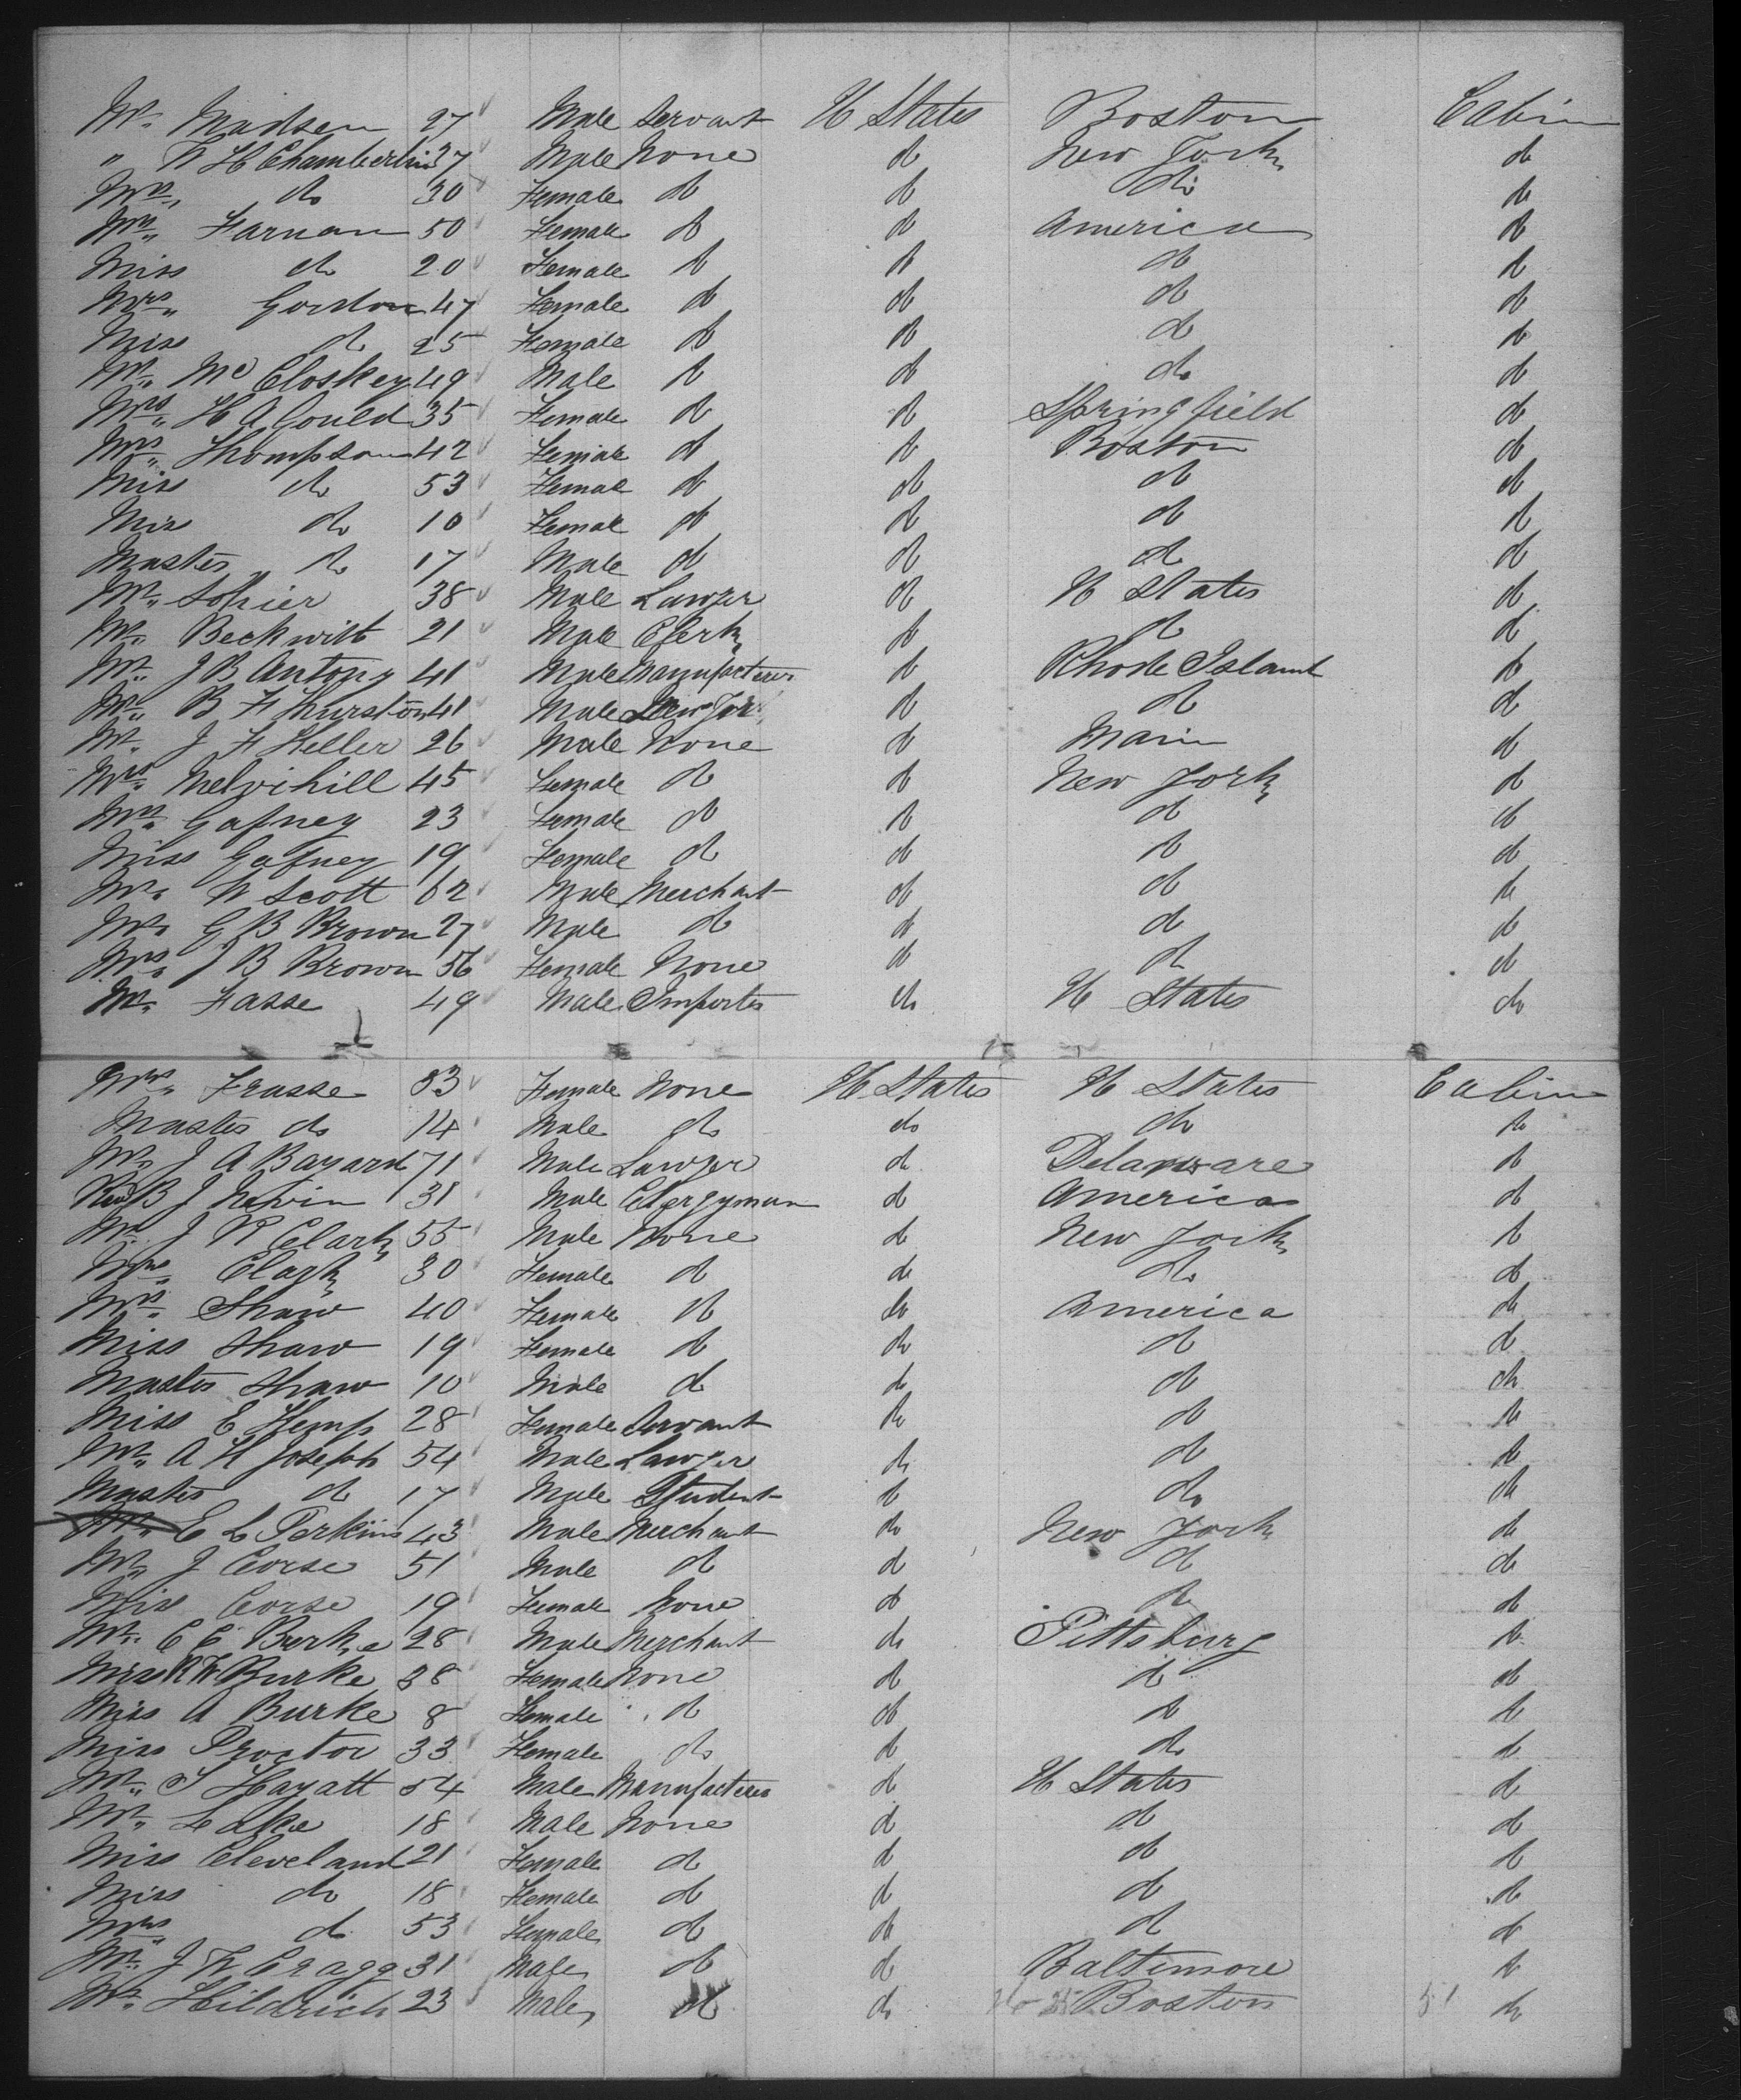 Mr. Madsen 27 Male Servant U States Boston Cabin
" W H Chamberlin 37 Male None do New York do
Mrs. do 30 Female do do do do
Mrs. Farnam 50 Female do do America do
Miss do 20 Female do do do do
Mrs. Gordon 47 Female do do do do
Miss do 25 Female do do do do
Mr. McCloskey 49 Male do do do do
Mrs. H A Gould 35 Female do do Springfield do
Mrs. Thompson 42 Female do do Boston do
Miss do 53 Female do do do do
Miss do 10 Female do do do do
Master do 17 Male do do do do
Mr. Sohier 38 Male Lawyer do U States do
Mr. Beckwith 21 Male Clerk do do do
Mr. J B Antony 41 Male Manufacturer do Rhode Island do
Mr. B F Thurston 41 Male do do do
Mr. J F Keller 26 Male None do Main do
Mrs. Melvihill 45 Female do do New York do
Mrs. Gafney 23 Female do do do do
Miss Gafney 19 Female do do do do
Mr. W Scott 62 Male Merchant do do do
Mr. G B Brown 27 Male do do do do
Mrs. J B Brown 56 Female None do do do
Mr. Fasse 49 Male Importer do U States do
Mrs. Frasse 33 Female None U States U States Cabin
Master do 14 Male do do do do
Mr. J A Bayard 71 Male Lawyer do Delaware do
Rev B J Nevin 31 Male Clergyman do America do
Mr. J R Clark 55 Male None do New York do
Mrs. Clark 30 Female do do do do
Mrs. Shaw 40 Female do do America do
Miss Shaw 19 Female do do do do
Master Shaw 10 Male do do do do
Miss E Hemp 28 Female Servant do do do
Mr. A H Joseph 54 Male Lawyer do do do
Master do 17 Male Student do do do
Mr. E L Perkins 43 Male Merchant do New York do
Mr. J Corse 51 Male do do do do
Miss Corse 19 Female None do do do
Mr. C C Burke 28 Male Merchant do Pittsburg do
Miss R W Burke 38 Female None do do do
Miss A Burke 8 Female do do do do
Miss Proctor 33 Female do do do do
Mr. T Hayatt 54 Male Manufacturer do U States do
Mr. Lake 18 Male None do do do
Miss Cleveland 21 Female do do do do
Miss do 18 Female do do do do
Mrs. do 53 Female do do do do
Mr. J W Cragg 31 Male do do Baltimore do
Mr. Hildrich 23 Male do do Boston 51 do